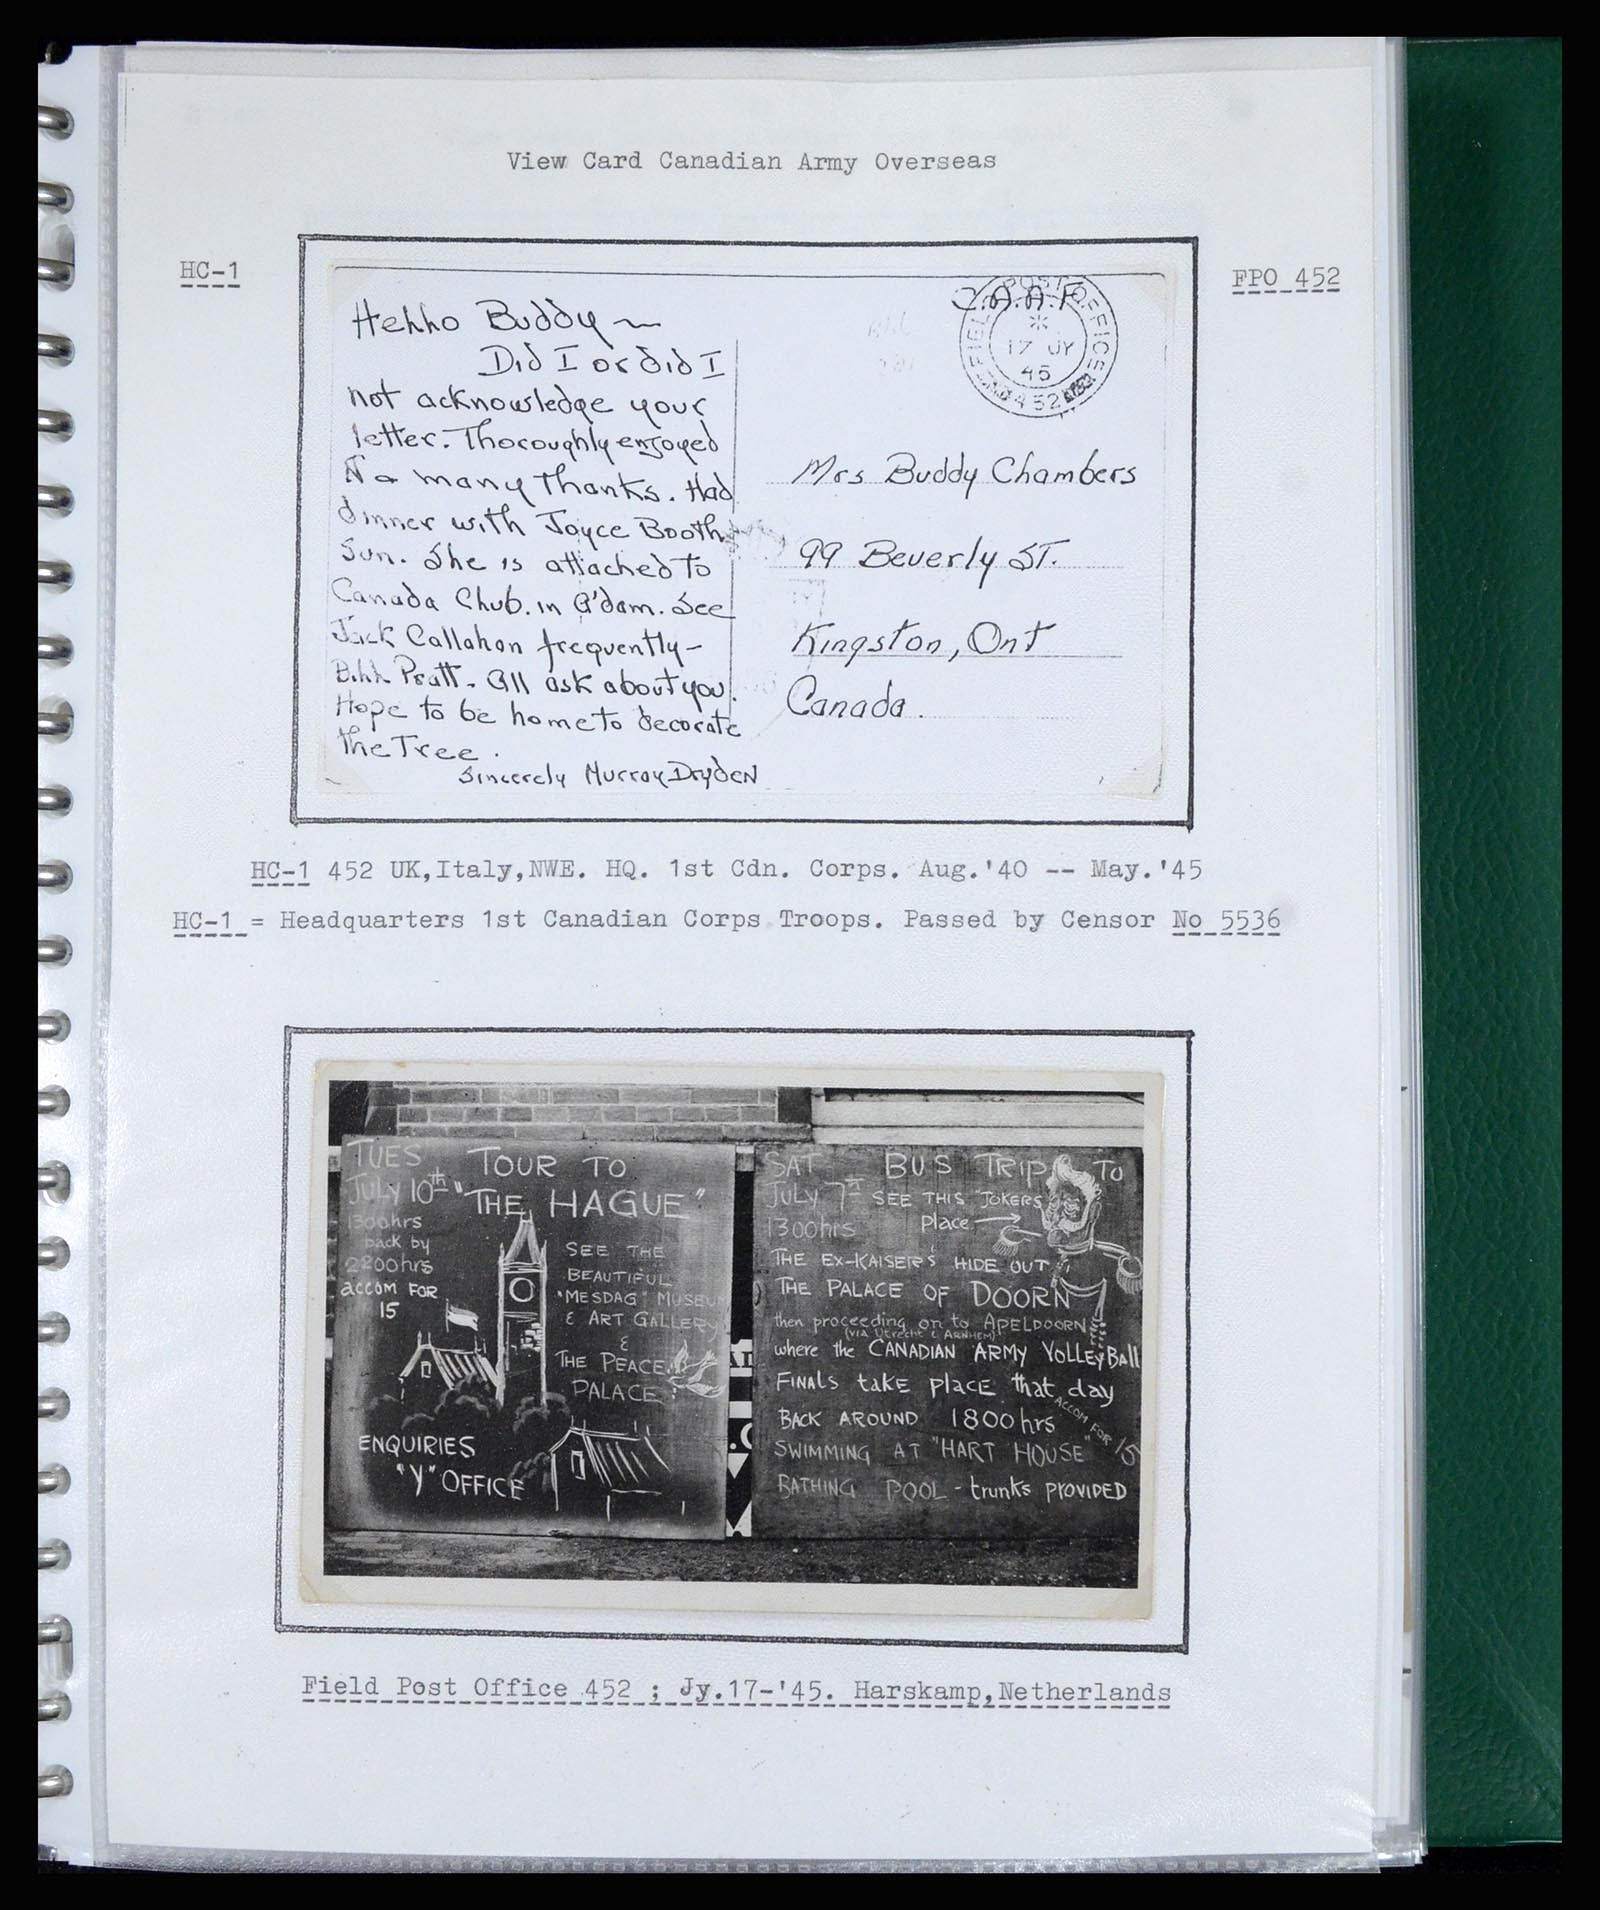 View Card Canadian Army Overseas
HC-1
FPO 452
Hello Buddy ~
Did I or did I
not acknowledge your
letter. Thoroughly enjoyed
many thanks. Had
dinner with Joyce Booth
Sun. She is attached to
Canada Club. in A'dam. See
Jack Callahan frequently-
Bill Pratt. All ask about you.
Hope to be home to decorate
the Tree.
Sincerely Murray Dryden
C.A.A.F.
FIELD POST OFFICE
17 JY
45
452
Mrs Buddy Chambers
99 Beverly ST.
Kingston, Ont
Canada.
HC-1 452 UK,Italy,NWE. HQ. 1st Cdn. Corps. Aug.'40 -- May.'45
HC-1 = Headquarters 1st Canadian Corps Troops. Passed by Censor No 5536
TUES TOUR TO
JULY 10th "THE HAGUE"
1300hrs
back by
2200hrs
accom FOR
15
SEE THE
BEAUTIFUL
"MESDAG" MUSEUM
& ART GALLERY
&
THE PEACE
PALACE
ENQUIRIES
"Y" OFFICE
SAT BUS TRIP TO
JULY 7th SEE THIS JOKERS
1300hrs place
THE EX-KAISER'S HIDE OUT
THE PALACE OF DOORN
then proceeding on to APELDOORN
(VIA Utrecht & ARNHEM)
where the CANADIAN ARMY VOLLEYBALL
FINALS take place that day
BACK AROUND 1800hrs
ACCOM FOR 15
SWIMMING AT "HART HOUSE"
BATHING POOL - trunks PROVIDED
Field Post Office 452 ; Jy.17-'45. Harskamp,Netherlands